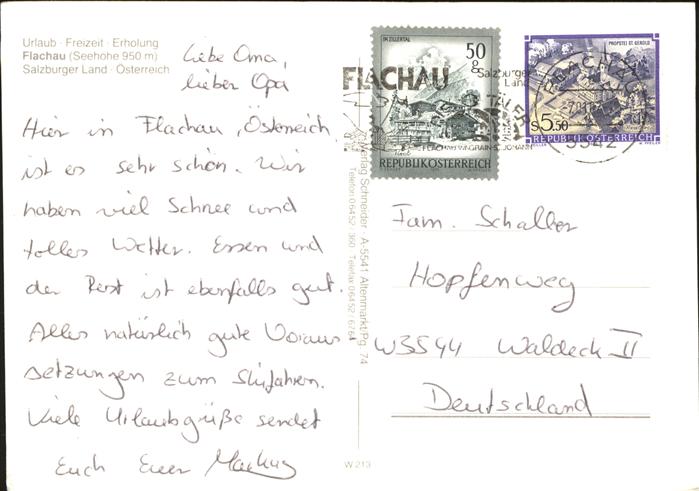 Urlaub · Freizeit · Erholung
Flachau (Seehöhe 950 m)
Salzburger Land · Österreich
Liebe Oma,
lieber Opa
Hier in Flachau, Österreich
ist es sehr schön. Wir
haben viel Schnee und
tolles Wetter. Essen und
der Rest ist ebenfalls gut.
Alles natürlich gute Voraus
setzungen zum Skifahren.
Viele Urlaubsgrüße sendet
Euch Euer Markus
IM ZILLERTAL
50
g
REPUBLIK ÖSTERREICH
FLACHAU
Salzburger
Land
FLACHAU WAGRAIN ST. JOHANN
PROPSTEI ST. GEROLD
S 5.50
REPUBLIK ÖSTERREICH
5542
Verlag Schneider · A-5541 Altenmarkt/Pg. 74
Telefon 06452 / 360 Telefax 06452 / 6764
Fam. Schaller
Hopfenweg
W3544 Waldeck II
Deutschland
W 213